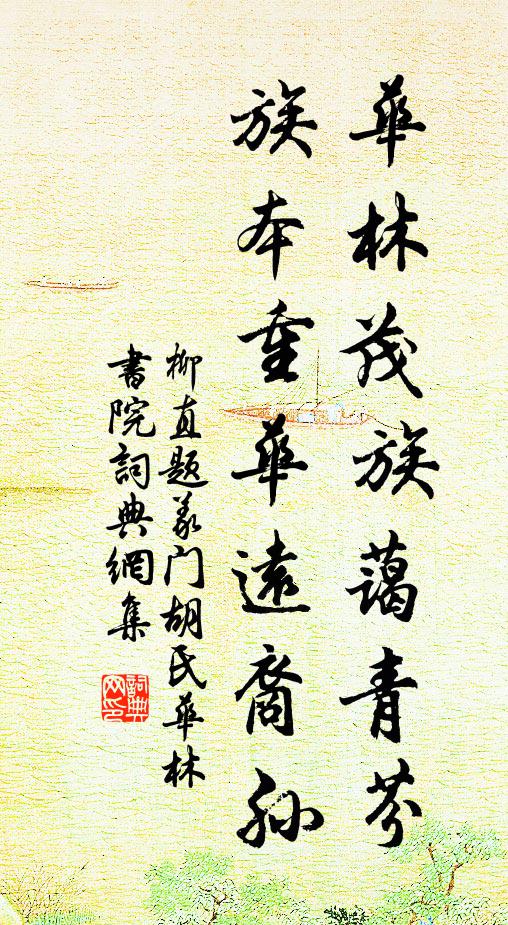 華林茂族藹青芬
族本重華遠裔孫
柳直題義门胡氏華林
書院詞典網集
詞典
网印